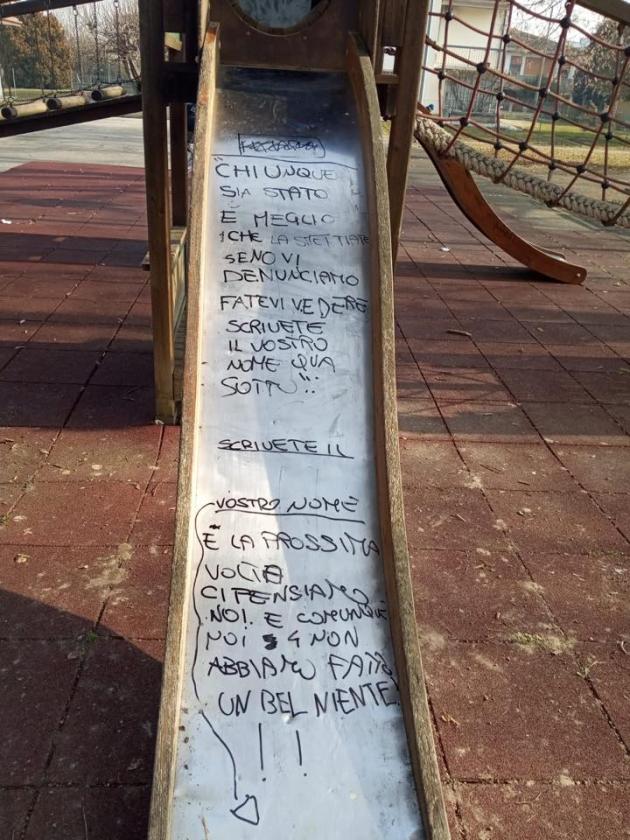 "CHIUNQUE
SIA STATO
È MEGLIO
CHE LA SMETTIATE
SENO VI
DENUNCIAMO
FATEVI VEDERE
SCRIVETE
IL VOSTRO
NOME QUA
SOTTO":
SCRIVETE IL
VOSTRO NOME
E LA PROSSIMA
VOLTA
CI PENSIAMO
NOI. E COMUNQUE
NOI 4 NON
ABBIAMO FATTO
UN BEL NIENTE
! !